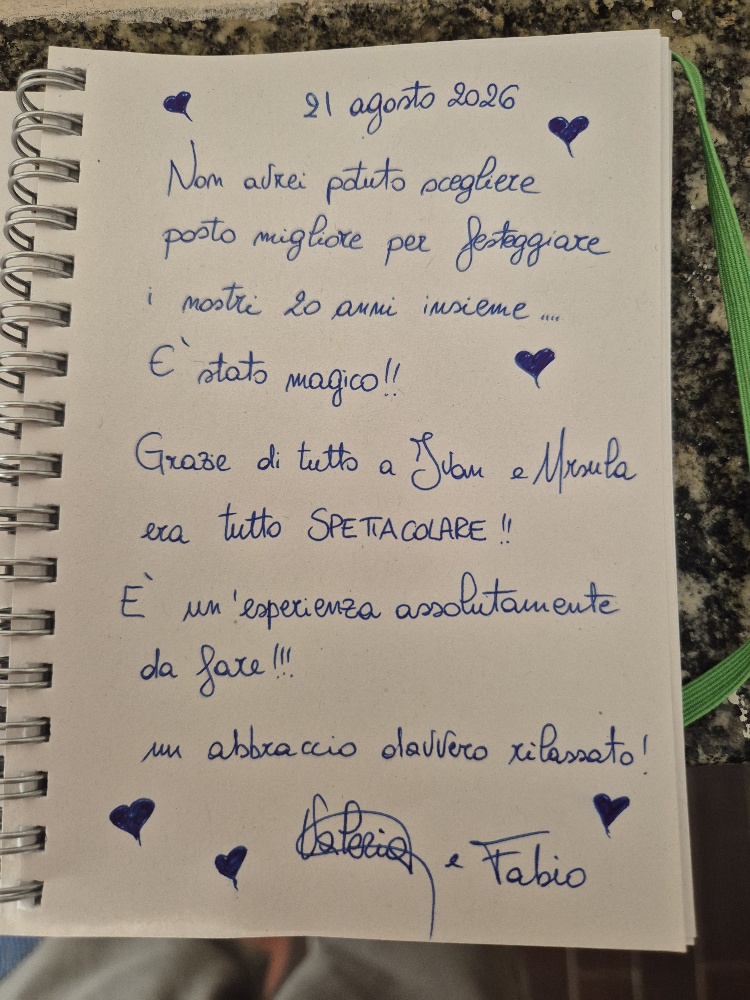 21 agosto 2026
Non avrei potuto scegliere
posto migliore per festeggiare
i nostri 20 anni insieme....
E' stato magico!!
Grazie di tutto a Ivan e Ursula
era tutto SPETTACOLARE!!
E' un'esperienza assolutamente
da fare!!!
un abbraccio davvero rilassato!
Valeria e Fabio